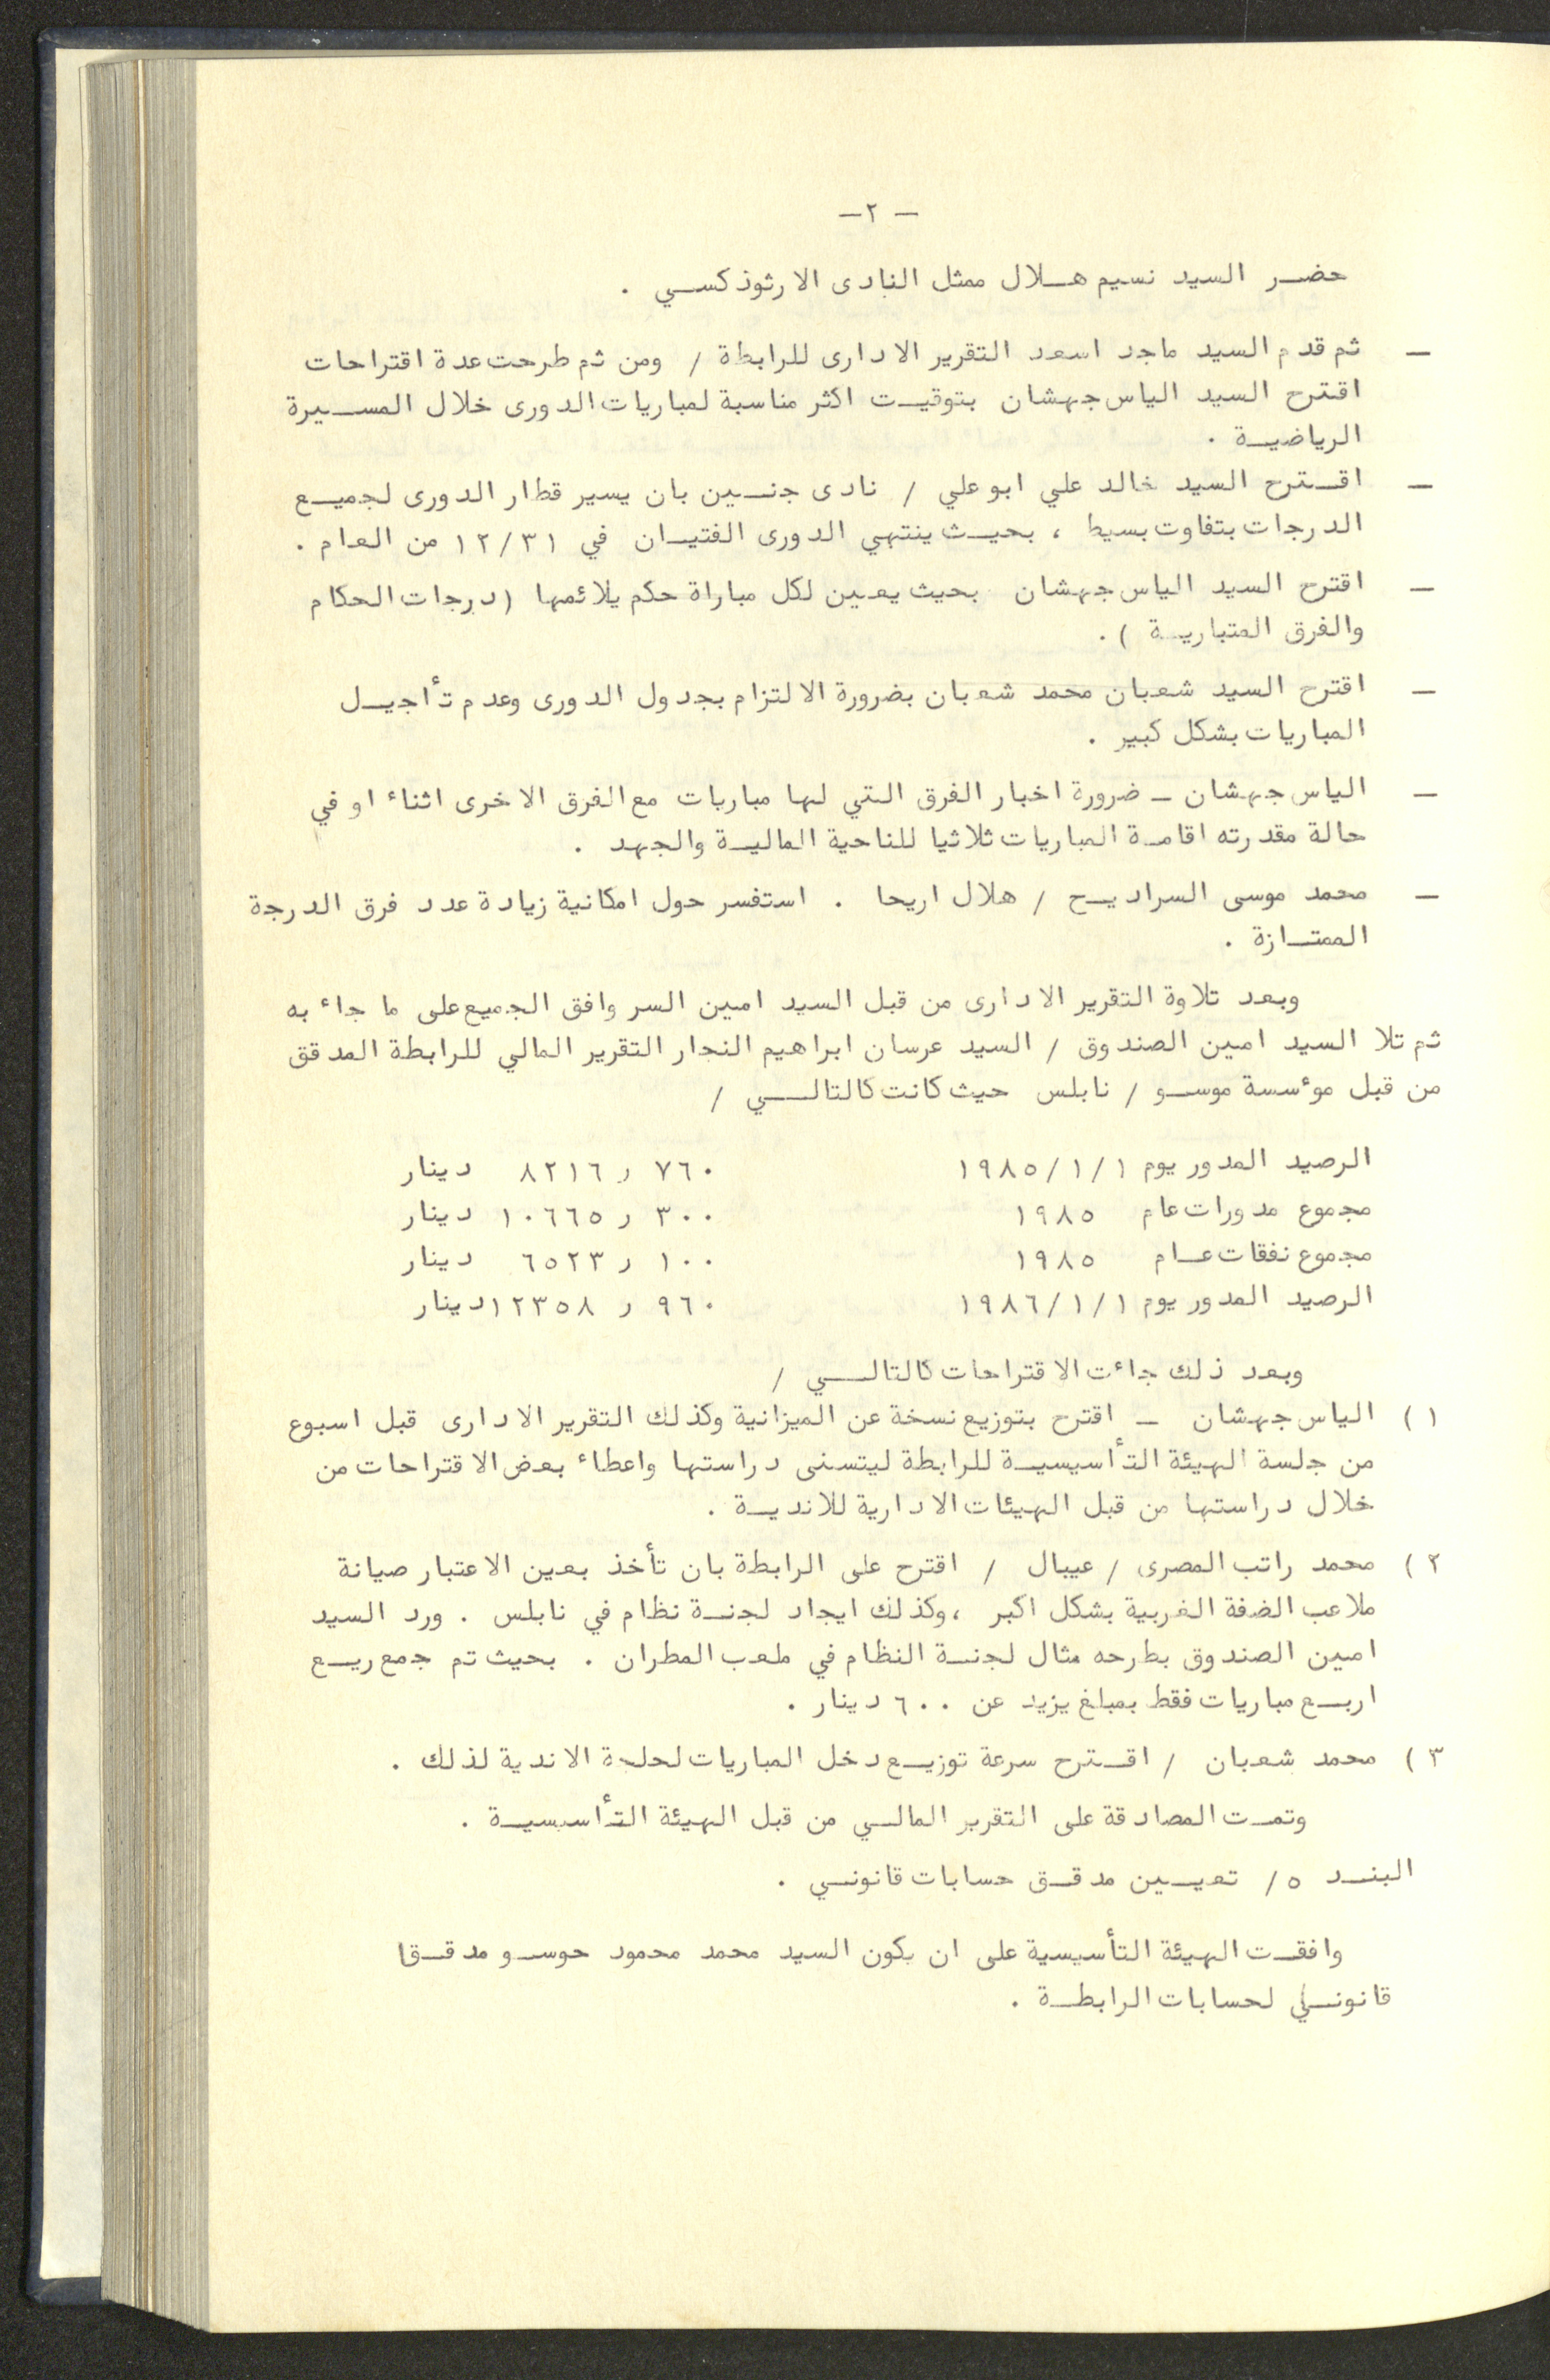 - ٢ -
حضر السيد نسيم هلال ممثل النادى الارثوذكسي .
- ثم قدم السيد ماجد اسعد التقرير الادارى للرابطة / ومن ثم طرحت عدة اقتراحات
اقترح السيد الياس جهشان بتوقيت اكثر مناسبة لمباريات الدورى خلال المسيرة
الرياضية .
- اقترح السيد خالد علي ابو علي / نادى جنين بان يسير قطار الدورى لجميع
الدرجات بتفاوت بسيط ، بحيث ينتهي الدورى الفتيان في ١٢/٣١ من العام .
- اقترح السيد الياس جهشان بحيث يعين لكل مباراة حكم يلائمها (درجات الحكام
والفرق المتبارية ) .
- اقترح السيد شعبان محمد شعبان بضرورة الالتزام بجدول الدورى وعدم تأجيل
المباريات بشكل كبير .
- الياس جهشان - ضرورة اخبار الفرق التي لها مباريات مع الفرق الاخرى اثناء او في
حالة مقدرته اقامة المباريات ثلاثيا للناحية المالية والجهد .
- محمد موسى السراديح / هلال اريحا . استفسر حول امكانية زيادة عدد فرق الدرجة
الممتازة .
وبعد تلاوة التقرير الادارى من قبل السيد امين السر وافق الجميع على ما جاء به
ثم تلا السيد امين الصندوق / السيد عرسان ابراهيم النجار التقرير المالي للرابطة المدقق
من قبل موءسسة موسو / نابلس حيث كانت كالتالي /
الرصيد المدور يوم ١/١/١٩٨٥ ٧٦٠ ر ٨٢١٦ دينار
مجموع مدورات عام ١٩٨٥ ٣٠٠ ر ١٠٦٦٥ دينار
مجموع نفقات عام ١٩٨٥ ١٠٠ ر ٦٥٢٣ دينار
الرصيد المدور يوم ١/١/١٩٨٦ ٩٦٠ ر ١٢٣٥٨ دينار
وبعد ذلك جاءت الاقتراحات كالتالي /
١ ) الياس جهشان - اقترح بتوزيع نسخة عن الميزانية وكذلك التقرير الادارى قبل اسبوع
من جلسة الهيئة التأسيسية للرابطة ليتسنى دراستها واعطاء بعض الاقتراحات من
خلال دراستها من قبل الهيئات الادارية للاندية .
٢ ) محمد راتب المصرى / عيبال / اقترح على الرابطة بان تأخذ بعين الاعتبار صيانة
ملاعب الضفة الغربية بشكل اكبر ، وكذلك ايجاد لجنة نظام في نابلس . ورد السيد
امين الصندوق بطرحه مثال لجنة النظام في ملعب المطران . بحيث تم جمع ريع
اربع مباريات فقط بمبلغ يزيد عن ٦٠٠ دينار .
٣ ) محمد شعبان / اقترح سرعة توزيع دخل المباريات لحاجة الاندية لذلك .
وتمت المصادقة على التقرير المالي من قبل الهيئة التأسيسية .
البند ٥/ تعيين مدقق حسابات قانوني .
وافقت الهيئة التأسيسية على ان يكون السيد محمد محمود حوسو مدققا
قانوني لحسابات الرابطة .